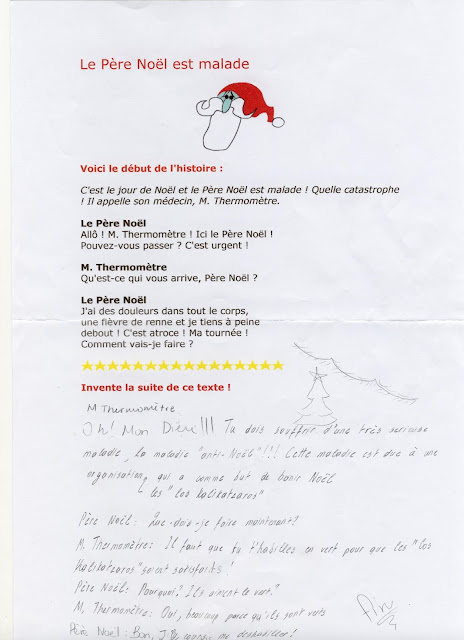 Le Père Noël est malade
Voici le début de l'histoire :
C'est le jour de Noël et le Père Noël est malade ! Quelle catastrophe
! Il appelle son médecin, M. Thermomètre.
Le Père Noël
Allô ! M. Thermomètre ! Ici le Père Noël !
Pouvez-vous passer ? C'est urgent !
M. Thermomètre
Qu'est-ce qui vous arrive, Père Noël ?
Le Père Noël
J'ai des douleurs dans tout le corps,
une fièvre de renne et je tiens à peine
debout ! C'est atroce ! Ma tournée !
Comment vais-je faire ?
Invente la suite de ce texte !
M Thermomètre
Oh! Mon Dieu!!! Tu dois souffrir d'une très serieuse
maladie, la maladie "anti-Noël"!!! Cette maladie est due à une
organisation, qui a comme but de banir Noël
les "los kalikatzaros"
Père Noël: Que dois-je faire maintenant?
M. Thermomètre: Il faut que tu t'habilles en vert pour que les "los
kalikatzaros" soient satisfaits!
Père Noël: Pourquoi? Ils aiment le vert?
M. Thermomètre: Oui, beaucoup parce qu'ils sont verts
Père Noël: Bon, J'  me deshabiller!
Fin